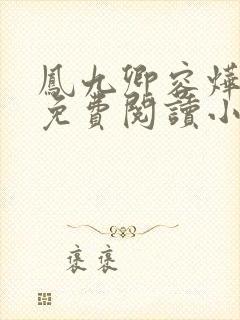 鳳九卿容燁
免費閱讀小
褒褒